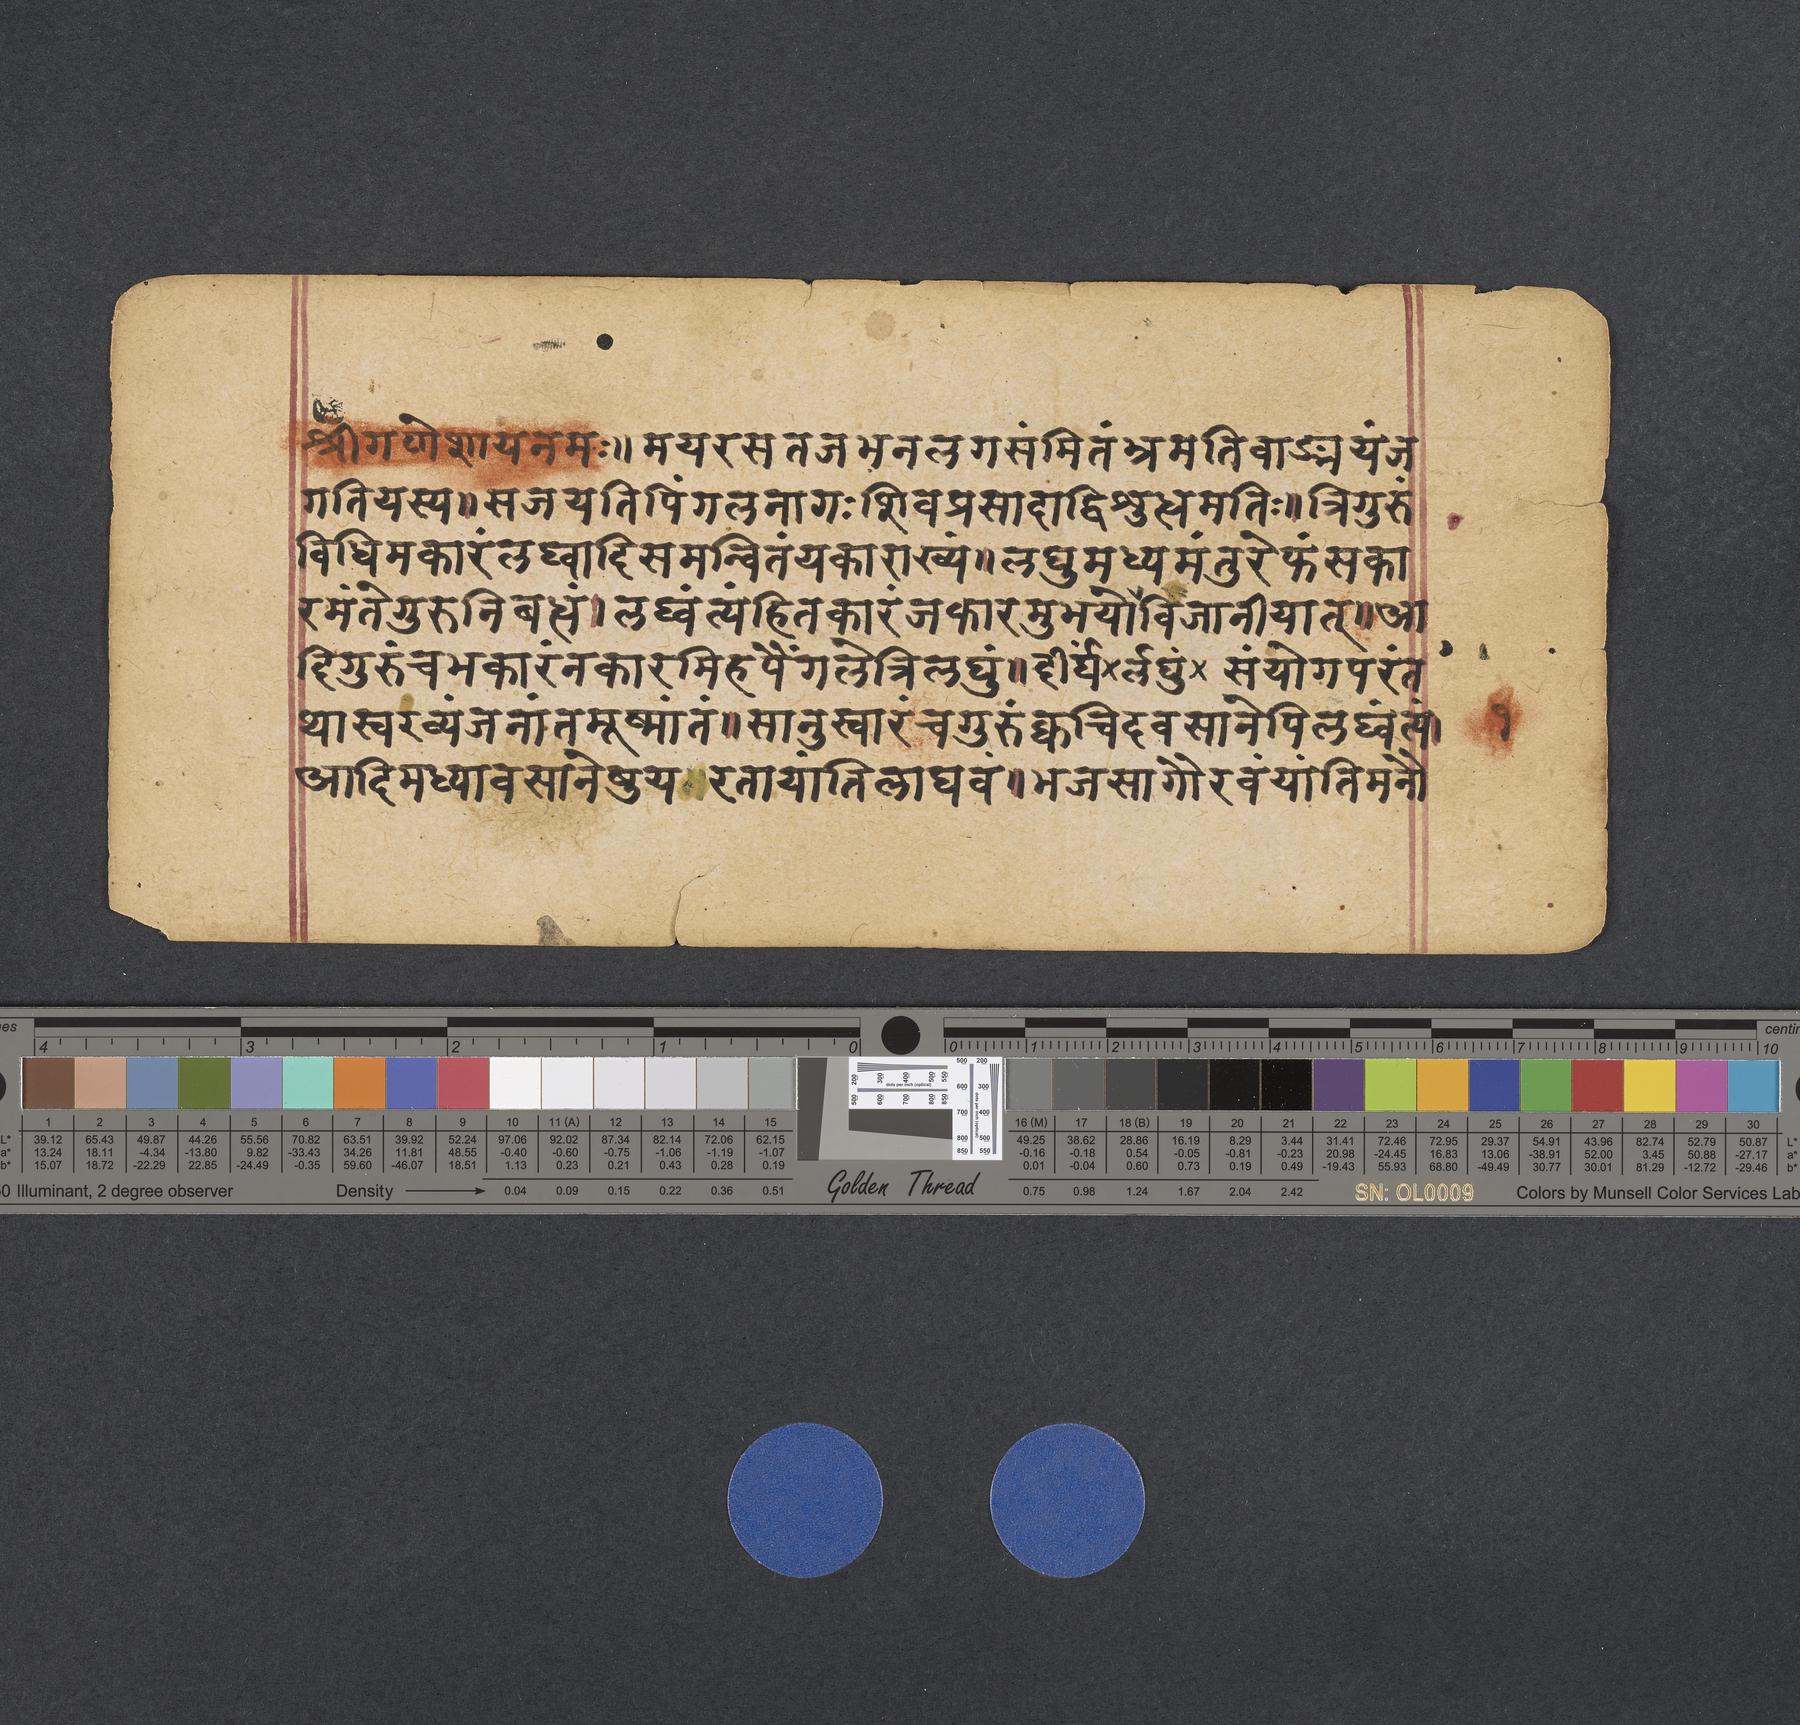 श्रीगणेशायनमः॥मयरसतजभनलगसंमितंभ्रमतिवाङ्मयंज
गतियस्य॥सजयतिपिंगलनागःशिवप्रसादाद्विशुद्धमतिः॥त्रिगुरुं
विधिमकारंलघ्वादिसमन्वितंयकाराख्यं॥लघुमध्यमंतुरेफंसका
रमंतेगुरुनिबद्धं।लघ्वंत्यंहितकारंजकारमुभयोर्विजानीयात्॥आ
दिगुरुंचभकारंनकारमिहपैंगलेत्रिलघुं॥दीर्घं×र्लघुं× संयोगपरंत
थास्वरव्यंजनांतमूष्मांतं॥सानुस्वारंचगुरुंक्वचिदवसानेपिलघ्वंत्यं।
आदिमध्यावसानेषुय रतायांतिलाघवं॥भजसागौरवंयांतिमनौ
१
nes 4 3 2 1 0 0 1 2 3 4 5 6 7 8 9 10 centin
1 2 3 4 5 6 7 8 9 10 11 (A) 12 13 14 15 16 (M) 17 18 (B) 19 20 21 22 23 24 25 26 27 28 29 30
L* 39.12 65.43 49.87 44.26 55.56 70.82 63.51 39.92 52.24 97.06 92.02 87.34 82.14 72.06 62.15 49.25 38.62 28.86 16.19 8.29 3.44 31.41 72.46 72.95 29.37 54.91 43.96 82.74 52.79 50.87 L*
a* 13.24 18.11 -4.34 -13.80 9.82 -33.43 34.26 11.81 48.55 -0.40 -0.60 -0.75 -1.06 -1.19 -1.07 -0.16 -0.18 0.54 -0.05 -0.81 -0.23 20.98 -24.45 16.83 13.06 -38.91 52.00 3.45 50.88 -27.17 a*
b* 15.07 18.72 -22.29 22.85 -24.49 -0.35 59.60 -46.07 18.51 1.13 0.23 0.21 0.43 0.28 0.19 0.01 -0.04 0.60 0.73 0.19 0.49 -19.43 55.93 68.80 -49.49 30.77 30.01 81.29 -12.72 -29.46 b*
0 Illuminant, 2 degree observer Density 0.04 0.09 0.15 0.22 0.36 0.51 Golden Thread 0.75 0.98 1.24 1.67 2.04 2.42 SN: OL0009 Colors by Munsell Color Services Lab